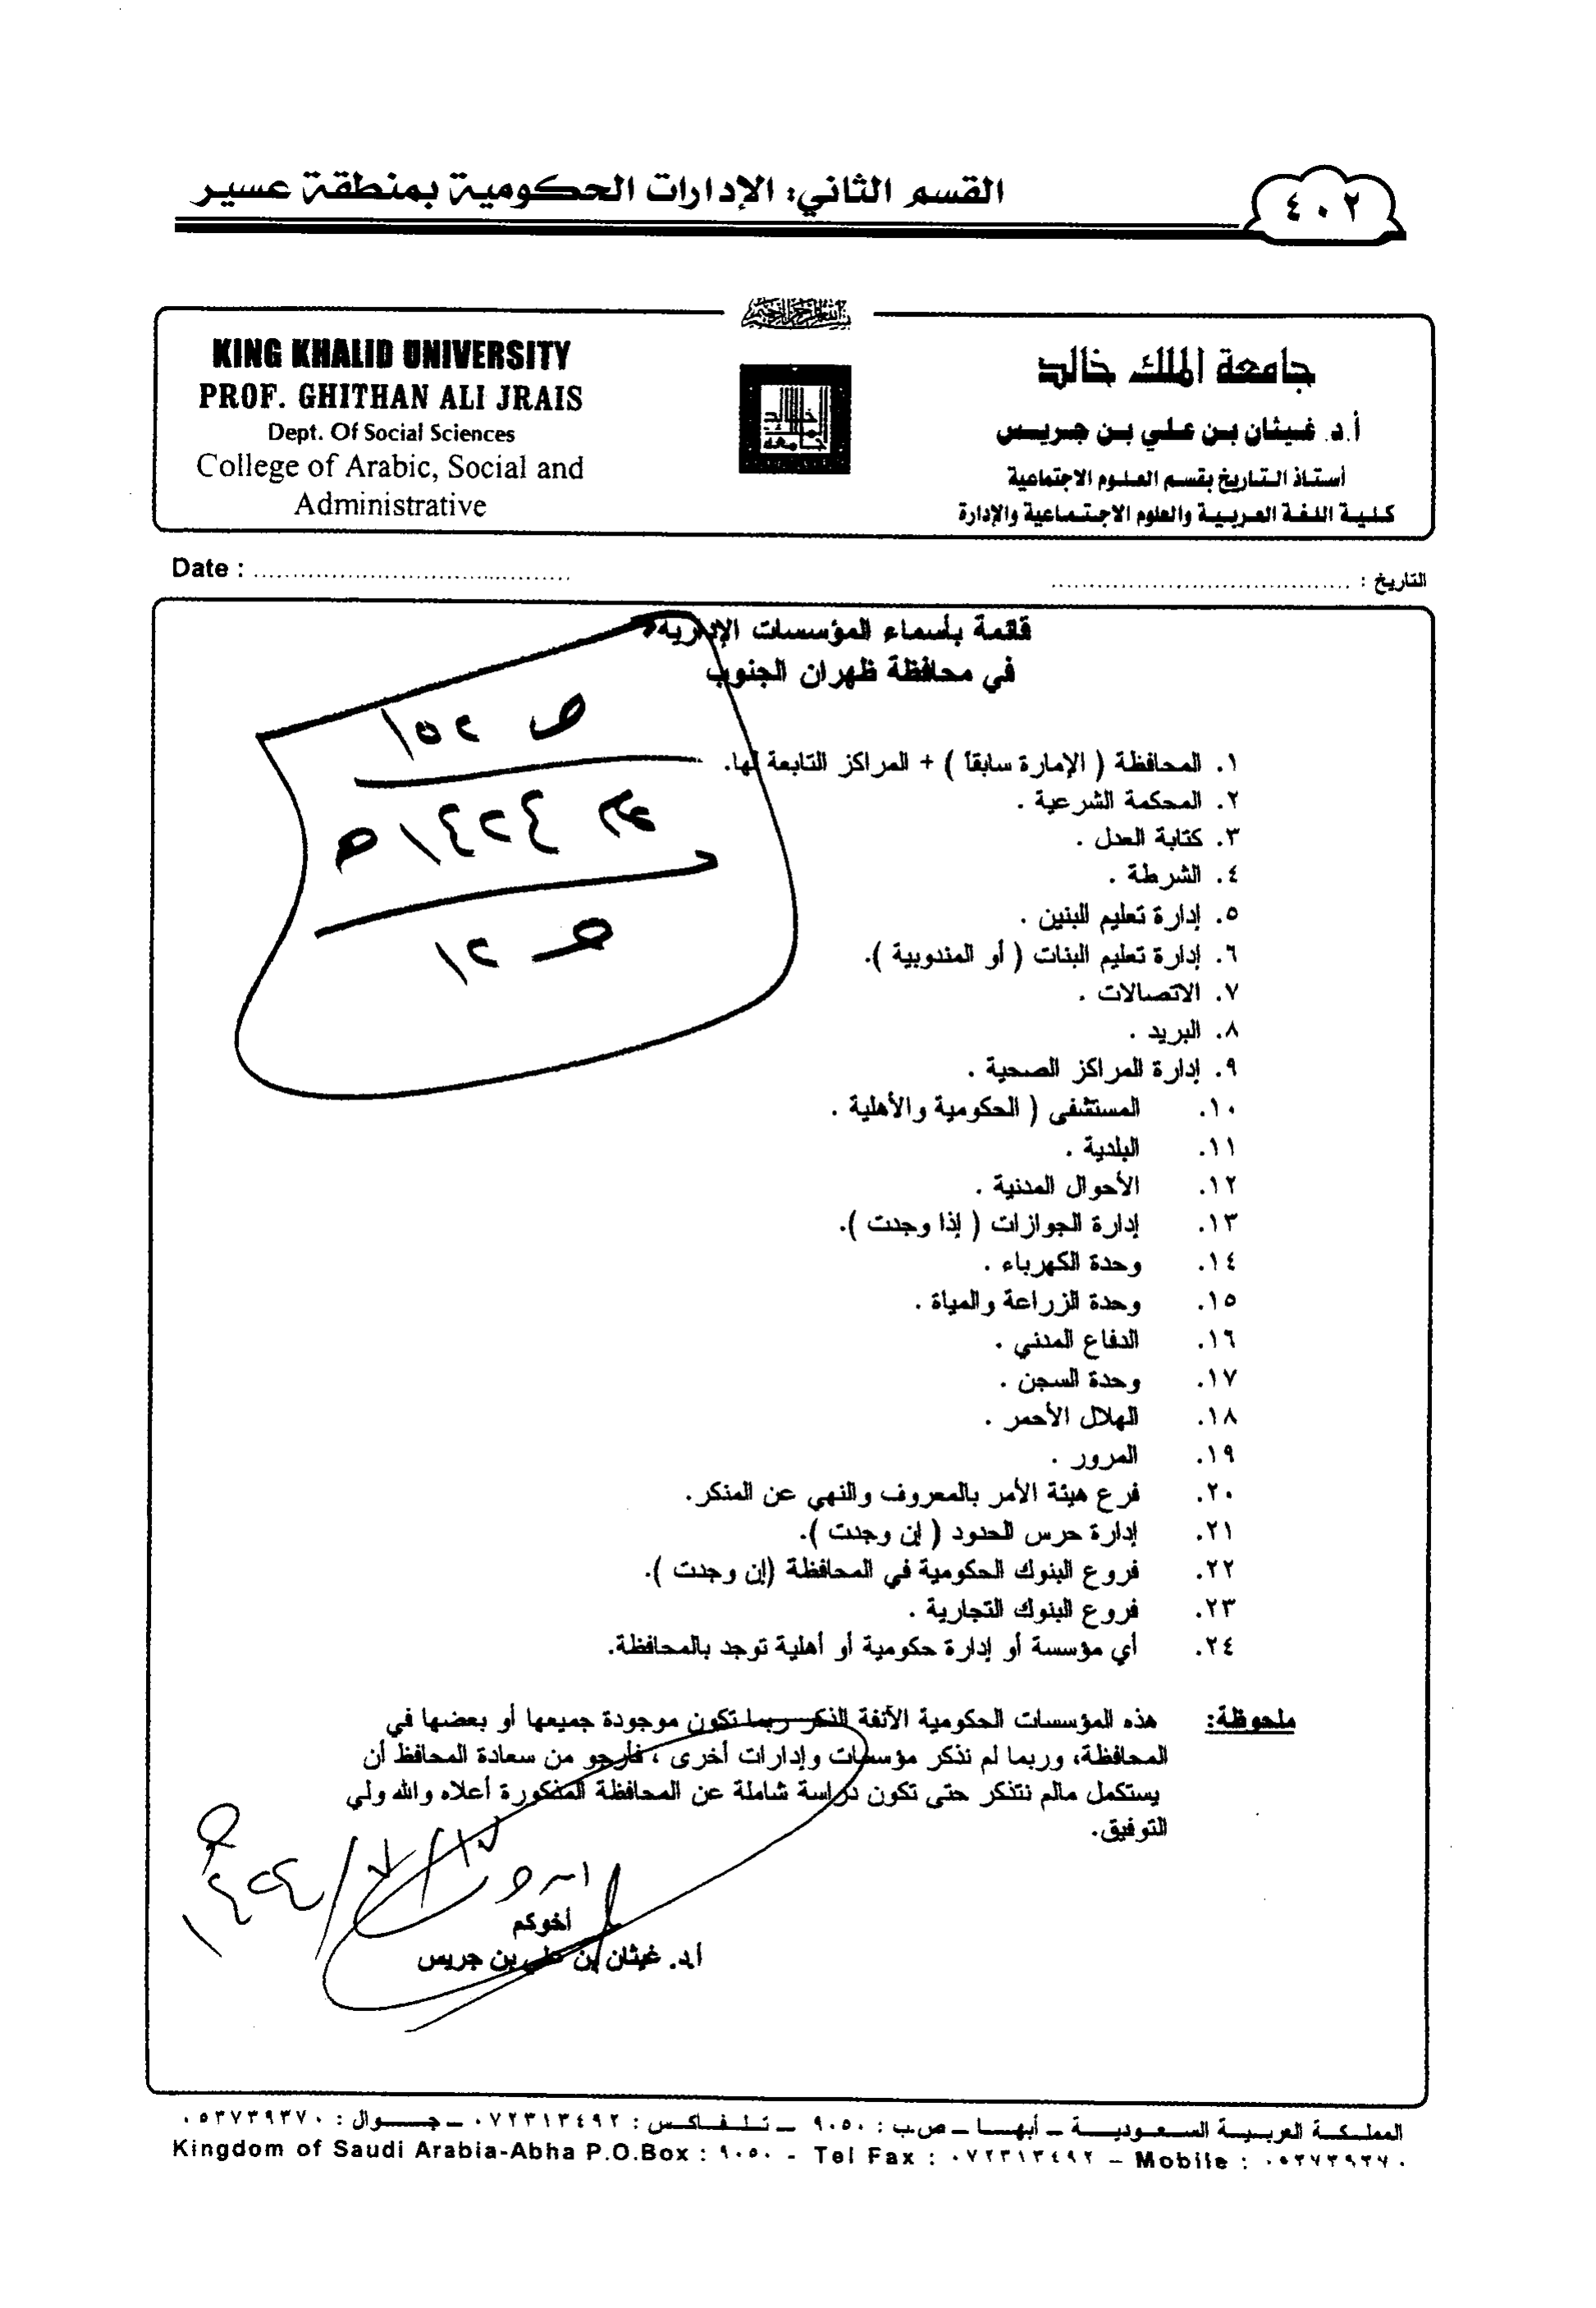 ٤٠٢
القسم الثاني: الإدارات الحكومية بمنطقة عسير
بسم الله الرحمن الرحيم
KING KHALID UNIVERSITY
PROF. GHITHAN ALI JRAIS
Dept. Of Social Sciences
College of Arabic, Social and
Administrative
جامعة الملك خالد
أ.د. غيثان بن علي بن جريس
أستاذ التاريخ بقسم العلوم الاجتماعية
كلية اللغة العربية والعلوم الاجتماعية والإدارة
Date : ........................................
التاريخ : ........................................
قائمة بأسماء المؤسسات الإدارية
في محافظة ظهران الجنوب
ص ١٥٢
١٤٢٤هـ
١٢
١. المحافظة ( الإمارة سابقاً ) + المراكز التابعة لها.
٢. المحكمة الشرعية .
٣. كتابة العدل .
٤. الشرطة .
٥. إدارة تعليم البنين .
٦. إدارة تعليم البنات ( أو المندوبية ).
٧. الاتصالات .
٨. البريد .
٩. إدارة المراكز الصحية .
١٠. المستشفى ( الحكومية والأهلية .
١١. البلدية .
١٢. الأحوال المدنية .
١٣. إدارة الجوازات ( إذا وجدت ).
١٤. وحدة الكهرباء .
١٥. وحدة الزراعة والمياة .
١٦. الدفاع المدني .
١٧. وحدة السجن .
١٨. الهلال الأحمر .
١٩. المرور .
٢٠. فرع هيئة الأمر بالمعروف والنهي عن المنكر.
٢١. إدارة حرس الحدود ( إن وجدت ).
٢٢. فروع البنوك الحكومية في المحافظة (إن وجدت ).
٢٣. فروع البنوك التجارية .
٢٤. أي مؤسسة أو إدارة حكومية أو أهلية توجد بالمحافظة.
ملحوظة: هذه المؤسسات الحكومية الآنفة الذكر ربما تكون موجودة جميعها أو بعضها في
المحافظة، وربما لم نذكر مؤسسات وإدارات أخرى ، فأرجو من سعادة المحافظ أن
يستكمل مالم نتذكر حتى تكون دراسة شاملة عن المحافظة المذكورة أعلاه والله ولي
التوفيق.
أخوكم
أ.د. غيثان بن علي بن جريس
المملكة العربية السعودية – أبها – ص.ب : ٩٠٥٠ – تلفاكس : ٠٧٢٣١٣٤٩٢ – جوال : ٠٥٣٧٣٩٣٧٠
Kingdom of Saudi Arabia-Abha P.O.Box : ٩٠٥٠ - Tel Fax : ٠٧٢٣١٣٤٩٢ – Mobile : ٠٥٣٧٣٩٣٧٠